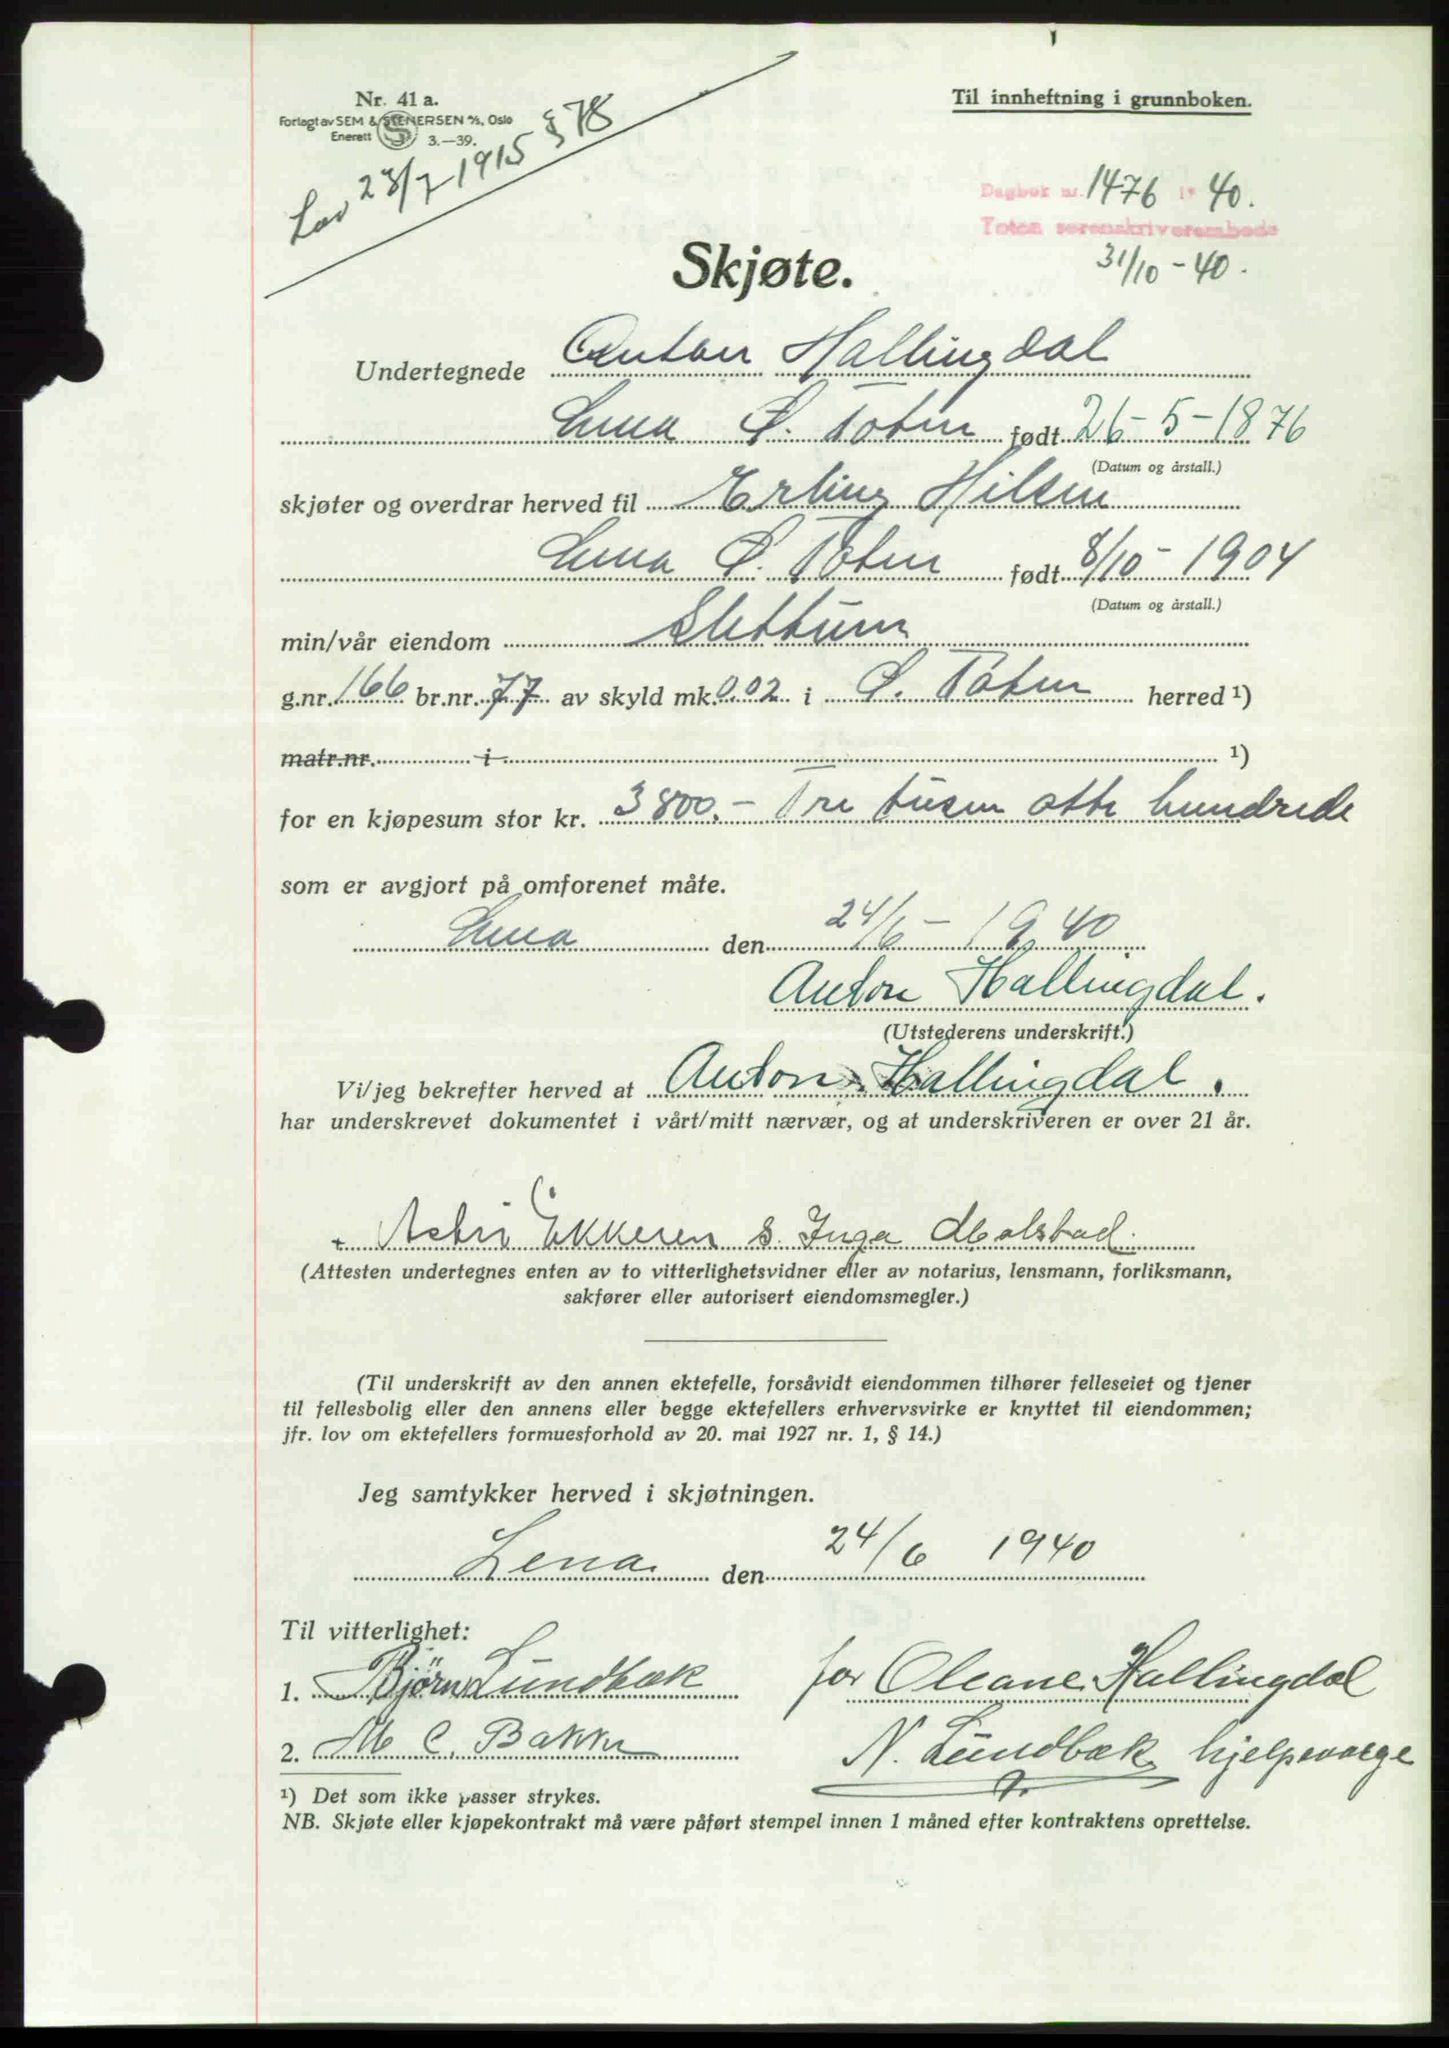 Nr. 41 a.
Forlagt av SEM & STENERSEN A/S, Oslo
Enerett 3.—39.
Til innheftning i grunnboken.
Lov 28/7 1915 § 78
Dagbok nr. 1476 19 40.
Toten sorenskriverembede
31/10 - 40.
Skjøte.
Undertegnede Anton Hallingdal
Lena Ø. Toten født 26-5-1876
(Datum og årstall.)
skjøter og overdrar herved til Erling Hilsen
Lena Ø. Toten født 8/10 - 1904
(Datum og årstall.)
min/vår eiendom Slettum
g.nr. 166 br.nr. 77 av skyld mk. 0.02 i Ø. Toten herred ¹)
matr.nr. i ¹)
for en kjøpesum stor kr. 3800.- Tre tusen otte hundrede
som er avgjort på omforenet måte.
Lena den 24/6 - 1940
Anton Hallingdal.
(Utstederens underskrift.)
Vi/jeg bekrefter herved at Anton Hallingdal.
har underskrevet dokumentet i vårt/mitt nærvær, og at underskriveren er over 21 år.
+ Astri Ekkeren s. Inga Molstad.
(Attesten undertegnes enten av to vitterlighetsvidner eller av notarius, lensmann, forliksmann,
sakfører eller autorisert eiendomsmegler.)
(Til underskrift av den annen ektefelle, forsåvidt eiendommen tilhører felleseiet og tjener
til fellesbolig eller den annens eller begge ektefellers erhvervsvirke er knyttet til eiendommen;
jfr. lov om ektefellers formuesforhold av 20. mai 1927 nr. 1, § 14.)
Jeg samtykker herved i skjøtningen.
Lena den 24/6 1940
Til vitterlighet:
1. Bjørn Lundbæk for Oleane Hallingdal
2. M C. Bakke N. Lundbæk hjelpeverge
¹) Det som ikke passer strykes.
NB. Skjøte eller kjøpekontrakt må være påført stempel innen 1 måned efter kontraktens oprettelse.